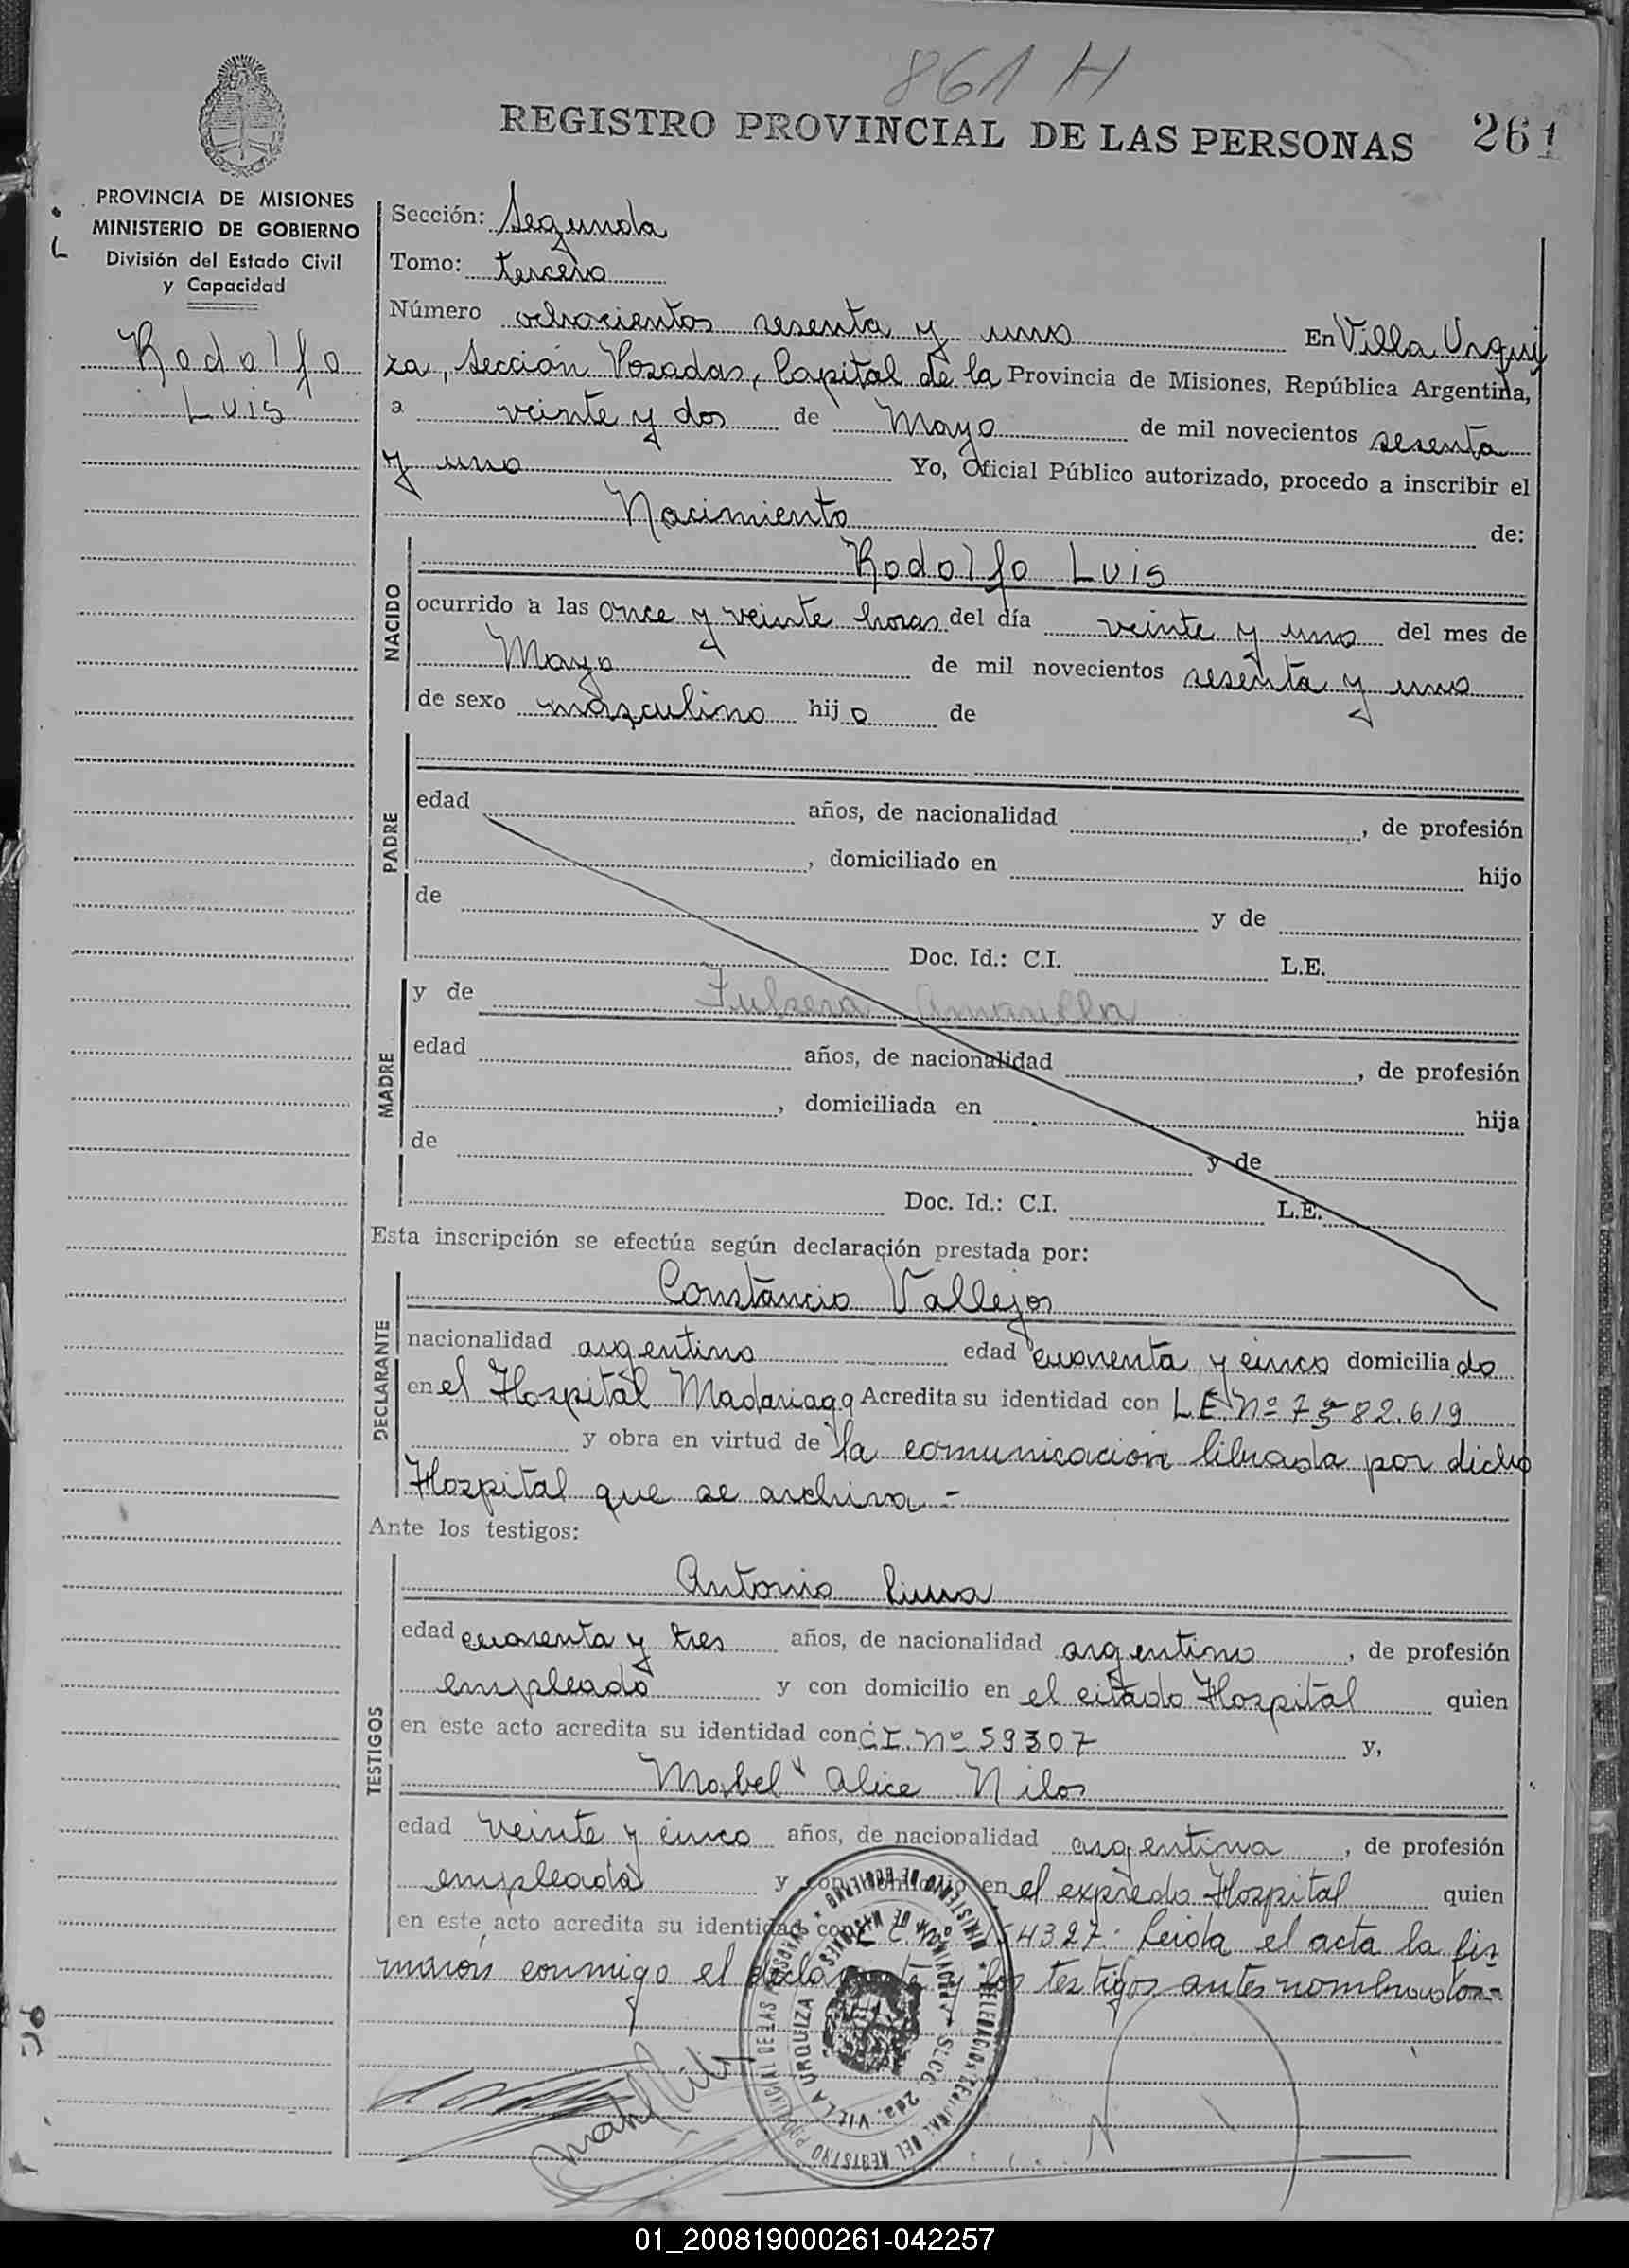 861 H
REGISTRO PROVINCIAL DE LAS PERSONAS 261
PROVINCIA DE MISIONES
MINISTERIO DE GOBIERNO
División del Estado Civil
y Capacidad
Rodolfo
Luis
Sección: Segunda
Tomo: tercero
Número ochocientos sesenta y uno En Villa Urqui
za, Sección Posadas, Capital de la Provincia de Misiones, República Argentina,
a veinte y dos de Mayo de mil novecientos sesenta
y uno Yo, Oficial Público autorizado, procedo a inscribir el
Nacimiento de:
NACIDO
Rodolfo Luis
ocurrido a las once y veinte horas del día veinte y uno del mes de
Mayo de mil novecientos sesenta y uno
de sexo masculino hijo de
PADRE
edad años, de nacionalidad , de profesión
, domiciliado en hijo
de y de
Doc. Id.: C.I. L.E.
MADRE
y de Amarilla
edad años, de nacionalidad , de profesión
, domiciliada en hija
de y de
Doc. Id.: C.I. L.E.
Esta inscripción se efectúa según declaración prestada por:
DECLARANTE
Constancio Vallejos
nacionalidad argentino edad cuarenta y cinco domiciliado
en el Hospital Madariaga Acredita su identidad con L E. Nº 7582.619
y obra en virtud de la comunicación librada por dicho
Hospital que se archiva.-
Ante los testigos:
TESTIGOS
Antonio Luna
edad cuarenta y tres años, de nacionalidad argentino, de profesión
empleado y con domicilio en el citado Hospital quien
en este acto acredita su identidad con C.I. Nº 59307 y,
Mabel Alice Nilos
edad veinte y cinco años, de nacionalidad argentina, de profesión
empleada y con domicilio en el expresado Hospital quien
en este acto acredita su identidad con 54327. Leida el acta la fir
maron conmigo el declarante y los testigos antes nombrados.-
VILLA URQUIZA
01_200819000261-042257